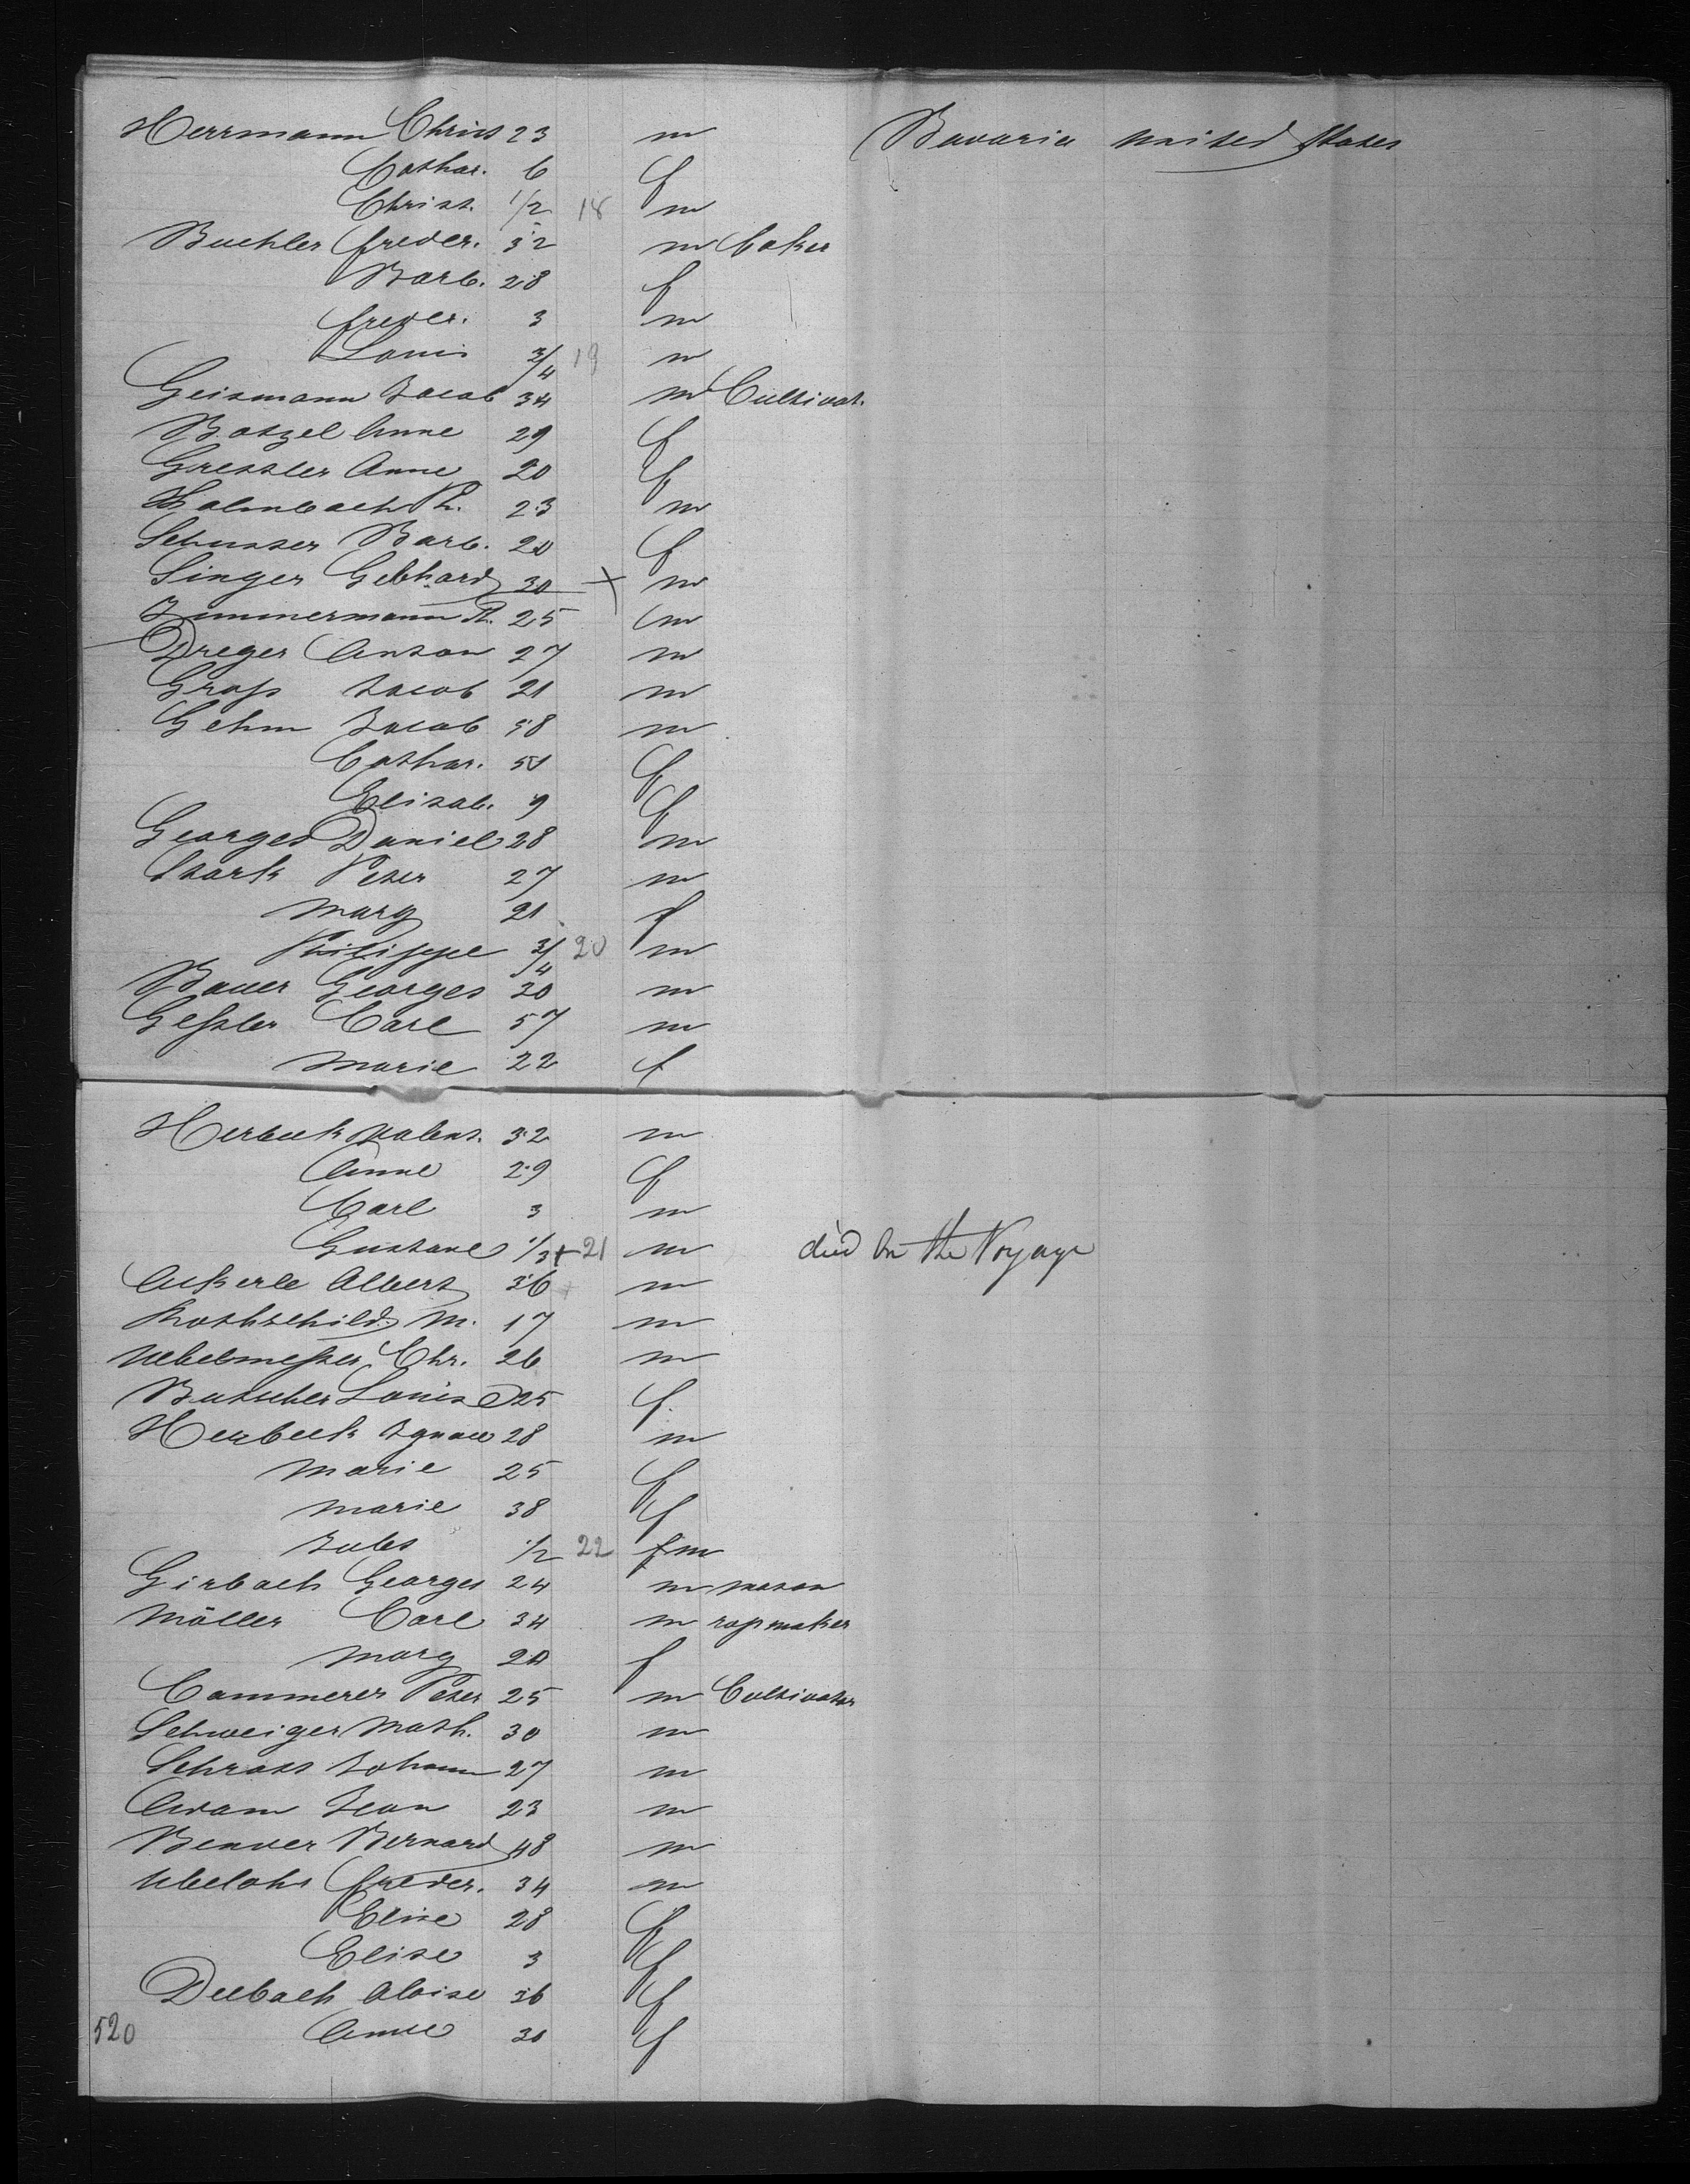 Herrmann Christ 23 m Bavaria united States
Cathar. 6 f
Christ. 1/2 18 m
Buehler freder. 32 m baker
Barb. 28 f
freder. 3 m
Louis 3/4 19 m
Geismann Jacob 34 m Cultivat.
Batzel Anne 29 f
Gressler Anne 20 f
Halmbach Ph. 23 m
Schuster Barb. 20 f
Singer Gebhard 30 + m
Zimmermann R. 25 m
Dreger Anton 27 m
Groß Jacob 21 m
Gehm Jacob 58 m
Cathar. 51 f
Elisab. 9 f
Georges Daniel 28 m
Stark Peter 27 m
Marg 21 f
Philippe 3/4 20 m
Bauer Georges 30 m
Geßler Carl 57 m
Marie 22 f
Herbeck Valent. 32 m
Anne 29 f
Carl 3 m
Gustave 1/3 + 21 m died on the Voyage
Aukerle Albert 36 m
Rothschild M. 17 m
Uebelmeßer Chr. 26 m
Butscher Louise 25 f.
Herbeck Ignace 28 m
Marie 25 f
Marie 38 f
Jules 1/2 22 f m
Girbach Georges 24 m mason
Möller Carl 34 m ropmaker
Marg 20 f
Cammerer Peter 25 m Cultivator
Schweiger Math. 30 m
Schrott Johann 27 m
Adam Jean 23 m
Bender Bernard 48 m
Freder. 34 m
Elise 28 f
Elise 3 f
Deebach Aloise 36 f
520 Anne 30 f